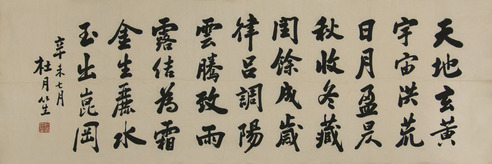 天地玄黃
宇宙洪荒
日月盈昃
秋收冬藏
閏餘成歲
律呂調陽
雲騰致雨
露结為霜
金生麗水
玉出崑岡
辛未七月
杜月笙